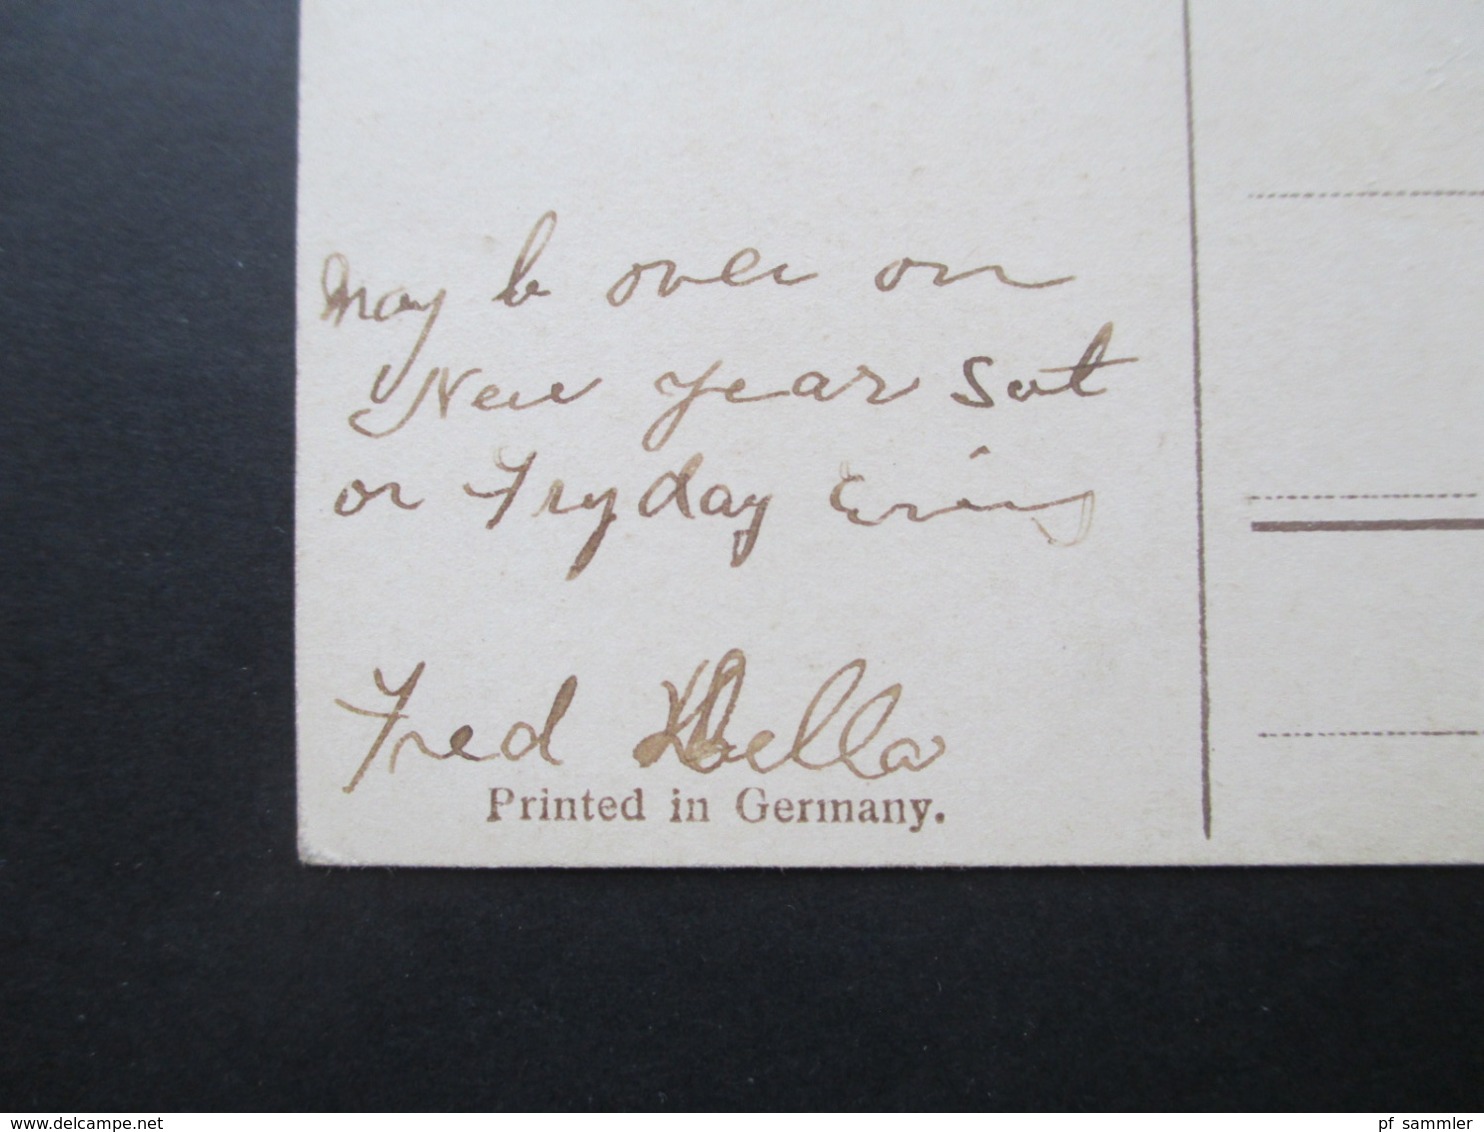 may b over on
New year Sat
or Fryday Evining
Fred Bella
Printed in Germany.
www.delcampe.net
pf_sammler